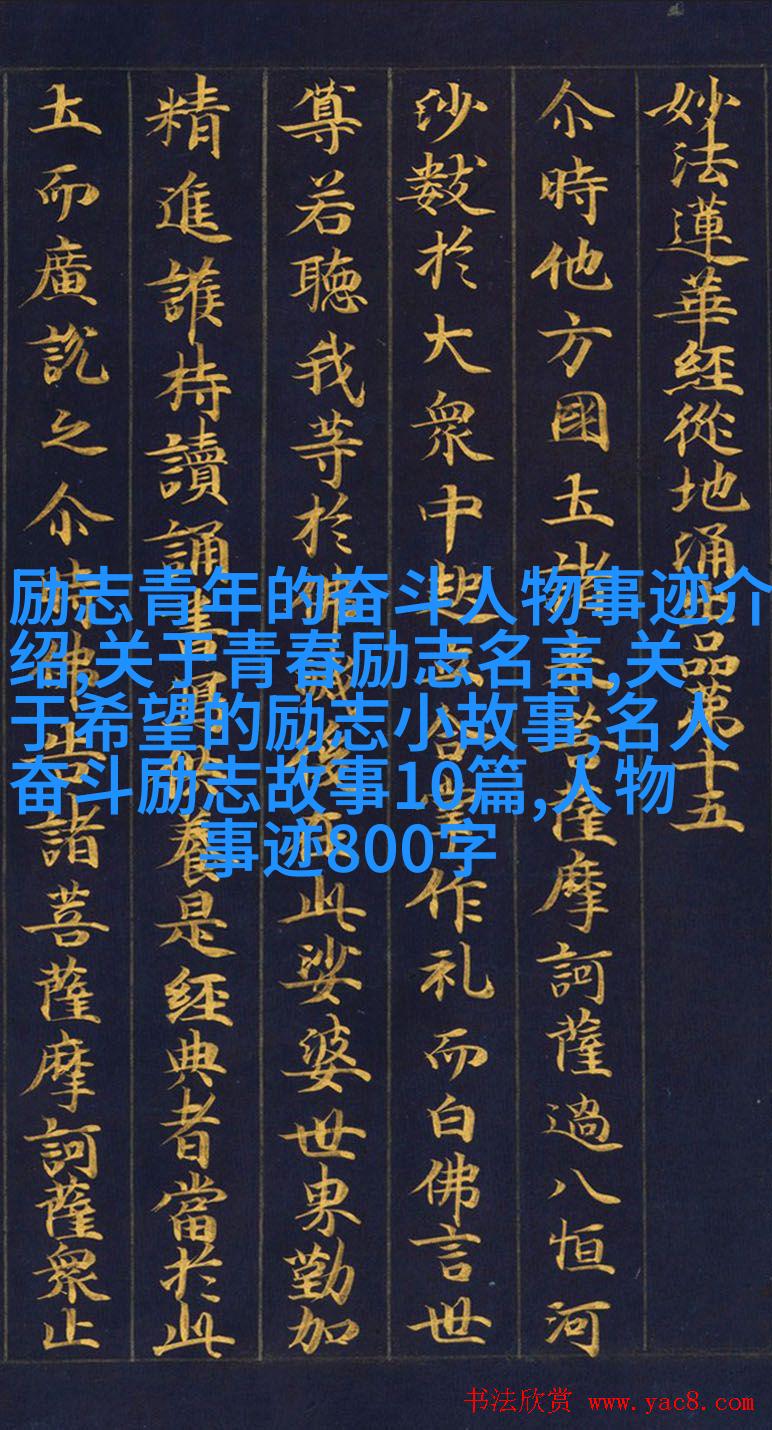 妙法蓮華經從地涌出品第十五
尒時他方國土諸來菩薩摩訶薩過八恒河
沙數於大眾中起立合掌作礼而白佛言世
尊若聽我等於佛滅後在此娑婆世界勤加
精進護持讀誦書寫供養是經典者當於此
土而廣說之尒時佛告諸菩薩摩訶薩眾止
励志青年的奋斗人物事迹介
绍,关于青春励志名言,关
于希望的励志小故事,名人
奋斗励志故事10篇,人物
事迹800字
书法欣赏 www.yac8.com